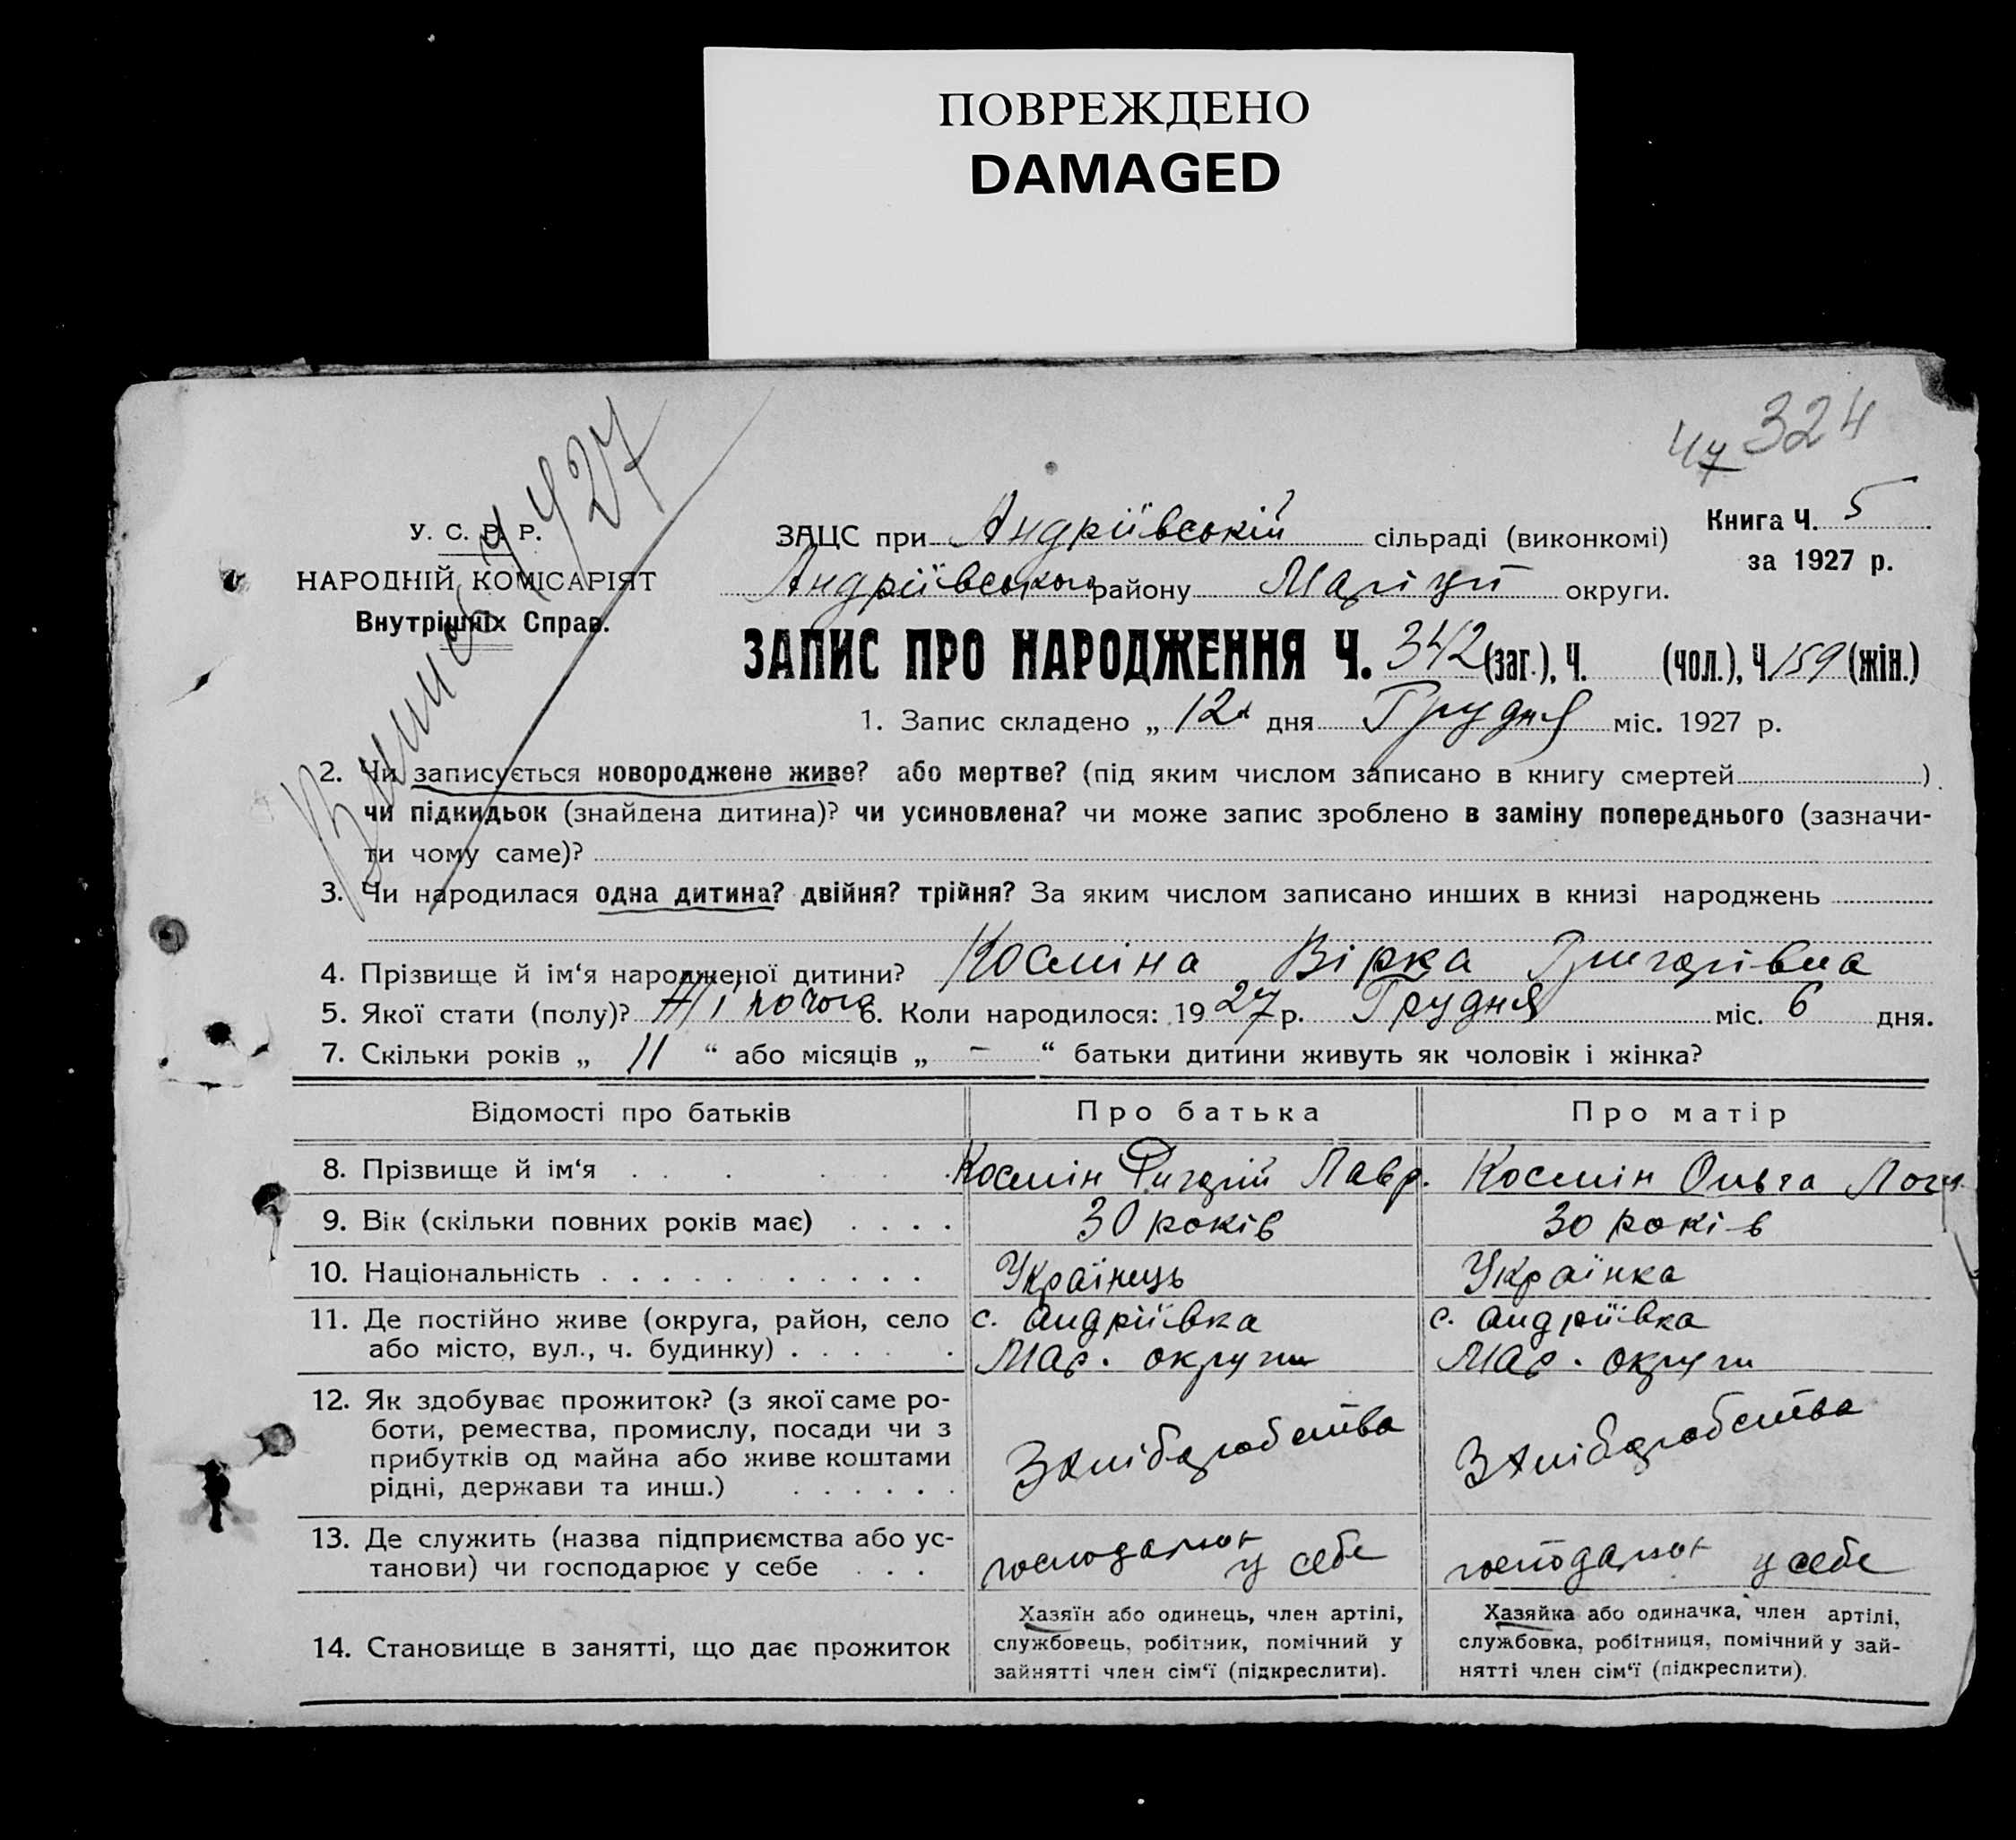 ПОВРЕЖДЕНО
DAMAGED
324
47
У. С. Р. Р.
НАРОДНІЙ КОМІСАРІЯТ
Внутрішніх Справ.
ЗАЦС при Андріївській сільраді (виконкомі)
Книга Ч. 5
за 1927 р.
Андріївського району округи.
ЗАПИС ПРО НАРОДЖЕННЯ Ч. 342 (заг.), Ч. (чол.), Ч. 159 (жін.)
1. Запис складено „ 12 дня Грудня міс. 1927 р.
2. Чи записується новороджене живе? або мертве? (під яким числом записано в книгу смертей )
чи підкидьок (знайдена дитина)? чи усиновлена? чи може запис зроблено в заміну попереднього (зазначи-
ти чому саме)?
3. Чи народилася одна дитина? двійня? трійня? За яким числом записано инших в книзі народжень
4. Прізвище й ім‘я народженої дитини? Косміна Вірка Григорівна
5. Якої стати (полу)? Жіночого 6. Коли народилося: 1927 р. Грудня міс. 6 дня.
7. Скільки років „ 11 “ або місяців „ – “ батьки дитини живуть як чоловік і жінка?
Відомості про батьків
Про батька
Про матір
8. Прізвище й ім‘я
Космін Григорій Лавр.
Космін Ольга
9. Вік (скільки повних років має)
30 років
30 років
10. Національність
Українець
Українка
11. Де постійно живе (округа, район, село
або місто, вул., ч. будинку)
с. Андріївка
Мар. округи
с. Андріївка
Мар. округи
12. Як здобуває прожиток? (з якої саме ро-
боти, ремества, промислу, посади чи з
прибутків од майна або живе коштами
рідні, держави та инш.)
З хліборобства
З хліборобства
13. Де служить (назва підприємства або ус-
танови) чи господарює у себе
у себе
у себе
14. Становище в занятті, що дає прожиток
Хазяїн або одинець, член артілі,
службовець, робітник, помічний у
зайнятті член сім‘ї (підкреслити).
Хазяйка або одиначка, член артілі,
службовка, робітниця, помічний у зай-
нятті член сім‘ї (підкреслити).